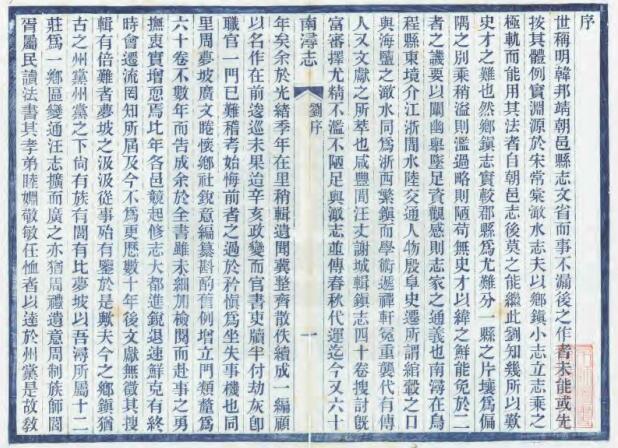 序
世稱明韓邦靖朝邑縣志文省而事不漏後之作者未能或先
按其體例實淵源於宋常棠澉水志夫以鄉鎮小志立志乘之
極軌而能用其法者自朝邑志後莫之能繼此劉知幾所以歎
史才之難也然鄉鎮志實較郡縣爲尤難分一縣之片壤爲偏
隅之別乘稍溢則濫過略則陋苟無史才以緯之鮮能免於二
者之譏要以闡幽舉墜足資觀感則志家之通義也南潯在烏
程縣東境介江浙閒水陸交通人物殷阜史遷所謂綰轂之口
與海鹽之澉水同爲浙西繁鎮而學術遞禪軒冕重襲代有傳
人又文獻之所萃也咸豐閒汪丈謝城輯鎮志四十卷搜討旣
富審擇尤精不濫不陋足與澉志並傳春秋代運迄今又六十
南潯志
劉序
一
年矣余於光緒季年在里稍輯遺聞冀整齊散佚續成一編顧
以名作在前逡巡未果迨辛亥政變而官書吏牘半付劫灰卽
職官一門已難稽考始悔前者之過於矜愼爲坐失事機也同
里周夢坡廣文睠懷鄉社銳意編纂斟酌舊例增立門類釐爲
六十卷不數年而告成余於全書雖未細加檢閱而赴事之勇
撫衷實增恧焉比年各邑競起修志大都進銳退速鮮克有終
時會遷流罔知所屆及今不爲更歷數十年後文獻無徵其搜
輯有倍難者夢坡之汲汲從事殆有鑒於是歟夫今之鄉鎮猶
古之州黨州黨之下尙有族有閭有比夢坡以吾潯所屬十二
莊爲一鄉區變通汪志擴而廣之亦猶周禮遺意周制族師閭
胥屬民讀法書其孝弟睦婣敬敏任恤者以達於州黨是故敎